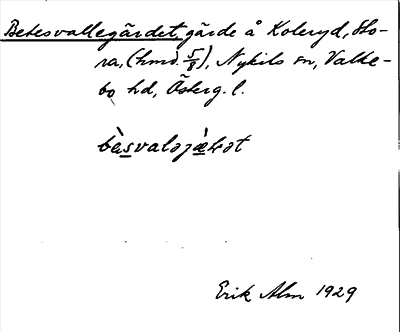 Betesvallegärdet, gärde å Koleryd, Sto-
ra, (hmd. 5/8), Nykils sn, Valke-
bo hd, Österg. l.
Erik Alm 1929